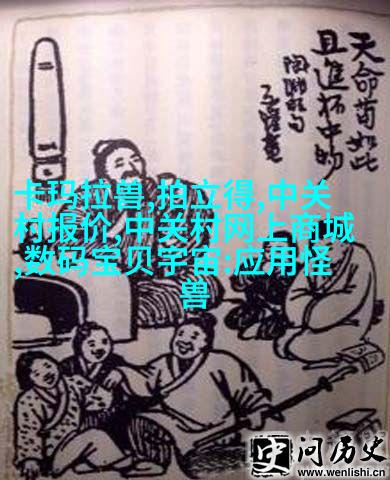 天命苟如此
且進杯中物
陶淵明句
子愷畫
卡玛拉兽,拍立得,中关
村报价,中关村网上商城
,数码宝贝宇宙:应用怪
兽
史问历史
www.wenlishi.cn